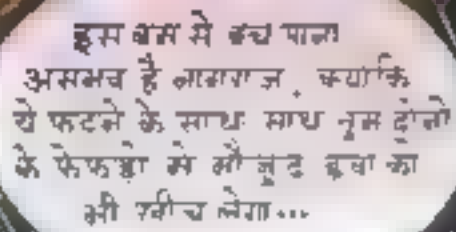 इस बम से बच पाना
असंभव है नागराज, क्योंकि
ये फटने के साथ साथ तुम दोनों
के फेफड़ों में मौजूद हवा को
भी खींच लेगा...